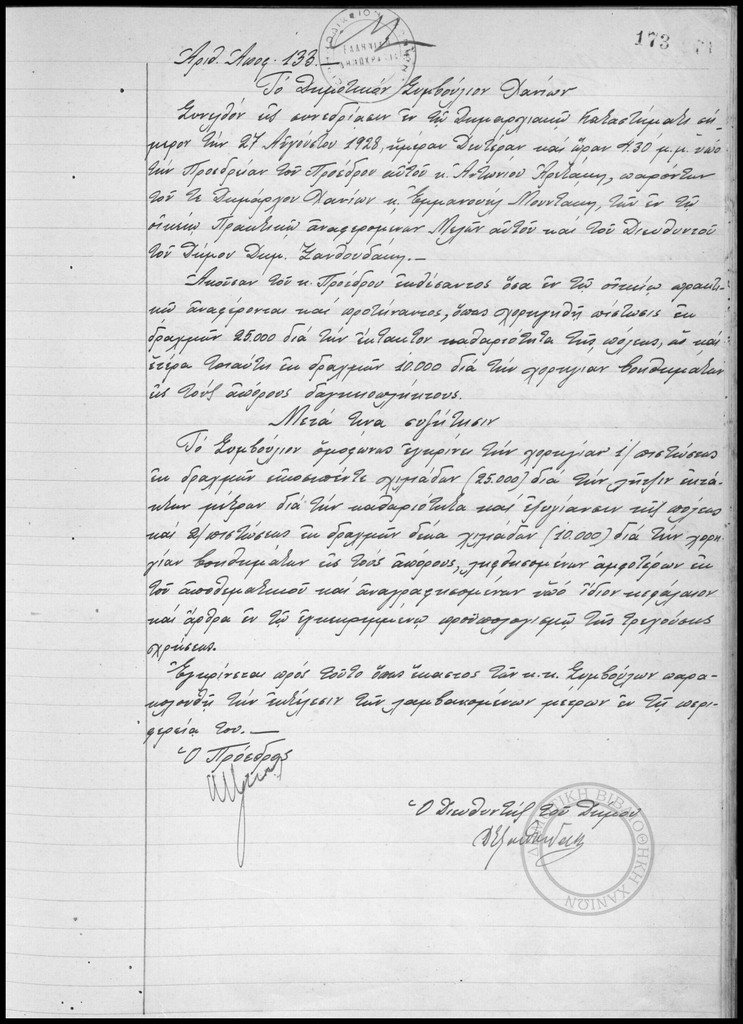 173
Ἀριθ. Ἀποφ. 133.
ΕΛΛΗΝΙΚΗ
ΔΗΜΟΚΡΑΤΙΑ
Τὸ Δημοτικὸν Συμβούλιον Χανίων
Συνελθὸν εἰς συνεδρίασιν ἐν τῷ Δημαρχιακῷ Καταστήματι σή-
μερον τὴν 27 Αὐγούστου 1928, ἡμέραν Δευτέραν καὶ ὥραν 4.30 μ.μ. ὑπὸ
τὴν Προεδρείαν τοῦ Προέδρου αὐτοῦ κ. Ἀντωνίου, παρόντων
τοῦ τε Δημάρχου Χανίων κ. Ἐμμανουὴλ Μουντάκη, τῶν ἐν τῷ
οἰκείῳ Πρακτικῷ ἀναφερομένων Μελῶν αὐτοῦ καὶ τοῦ Διευθυντοῦ
τοῦ Δήμου Δημ. Ξανθουδάκη.—
Ἀκοῦσαν τοῦ κ. Προέδρου ἐκθέσαντος ὅσα ἐν τῷ οἰκείῳ πρακτι-
κῷ ἀναφέρονται καὶ προτείναντος, ὅπως χορηγηθῇ πίστωσις ἐκ
δραχμῶν 25.000 διὰ τὴν ἔκτακτον καθαριότητα τῆς πόλεως, ὡς καὶ
ἑτέρα τοιαύτη ἐκ δραχμῶν 10.000 διὰ τὴν χορηγίαν βοηθημάτων
εἰς τοὺς ἀπόρους δαγκειοπλήκτους.
Μετά τινα συζήτησιν
Τὸ Συμβούλιον ὁμοφώνως ἐγκρίνει τὴν χορηγίαν 1/ πιστώσεως
ἐκ δραχμῶν εἰκοσιπέντε χιλιάδων (25.000) διὰ τὴν λῆψιν ἐκτά-
κτων μέτρων διὰ τὴν καθαριότητα καὶ ἐξυγίανσιν τῆς πόλεως
καὶ 2/ πιστώσεως ἐκ δραχμῶν δέκα χιλιάδων (10.000) διὰ τὴν χορη-
γίαν βοηθημάτων εἰς τοὺς ἀπόρους, ληφθησομένων ἀμφοτέρων ἐκ
τοῦ ἀποθεματικοῦ καὶ ἀναγραφησομένων ὑπὸ ἴδιον κεφάλαιον
καὶ ἄρθρα ἐν τῷ ἐγκεκριμμένῳ προϋπολογισμῷ τῆς τρεχούσης
χρήσεως.
Ἐγκρίνεται πρὸς τοῦτο ὅπως ἕκαστος τῶν κ.κ. Συμβούλων παρα-
κολουθῇ τὴν ἐκτέλεσιν τῶν λαμβανομένων μέτρων ἐν τῇ περι-
φερείᾳ του.—
Ὁ Πρόεδρος
Ὁ Διευθυντὴς τοῦ Δήμου
ΔΗΜΟΤΙΚΗ ΒΙΒΛΙΟΘΗΚΗ ΧΑΝΙΩΝ